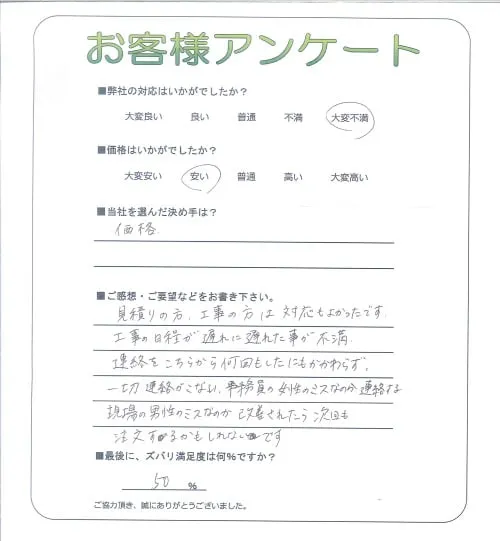 お客様アンケート
■弊社の対応はいかがでしたか？
大変良い 良い 普通 不満 大変不満
■価格はいかがでしたか？
大変安い 安い 普通 高い 大変高い
■当社を選んだ決め手は？
価格.
■ご感想・ご要望などをお書き下さい。
見積りの方、工事の方は対応もよかったです
工事の日程が遅れに遅れた事が不満.
連絡をこちらから何回もしたにもかかわらず,
一切連絡がこない、事務員の女性のミスなのか連絡する
現場の男性のミスなのか改善されたら次回も
注文するかもしれないです
■最後に、ズバリ満足度は何％ですか？
50 %
ご協力頂き、誠にありがとうございました。